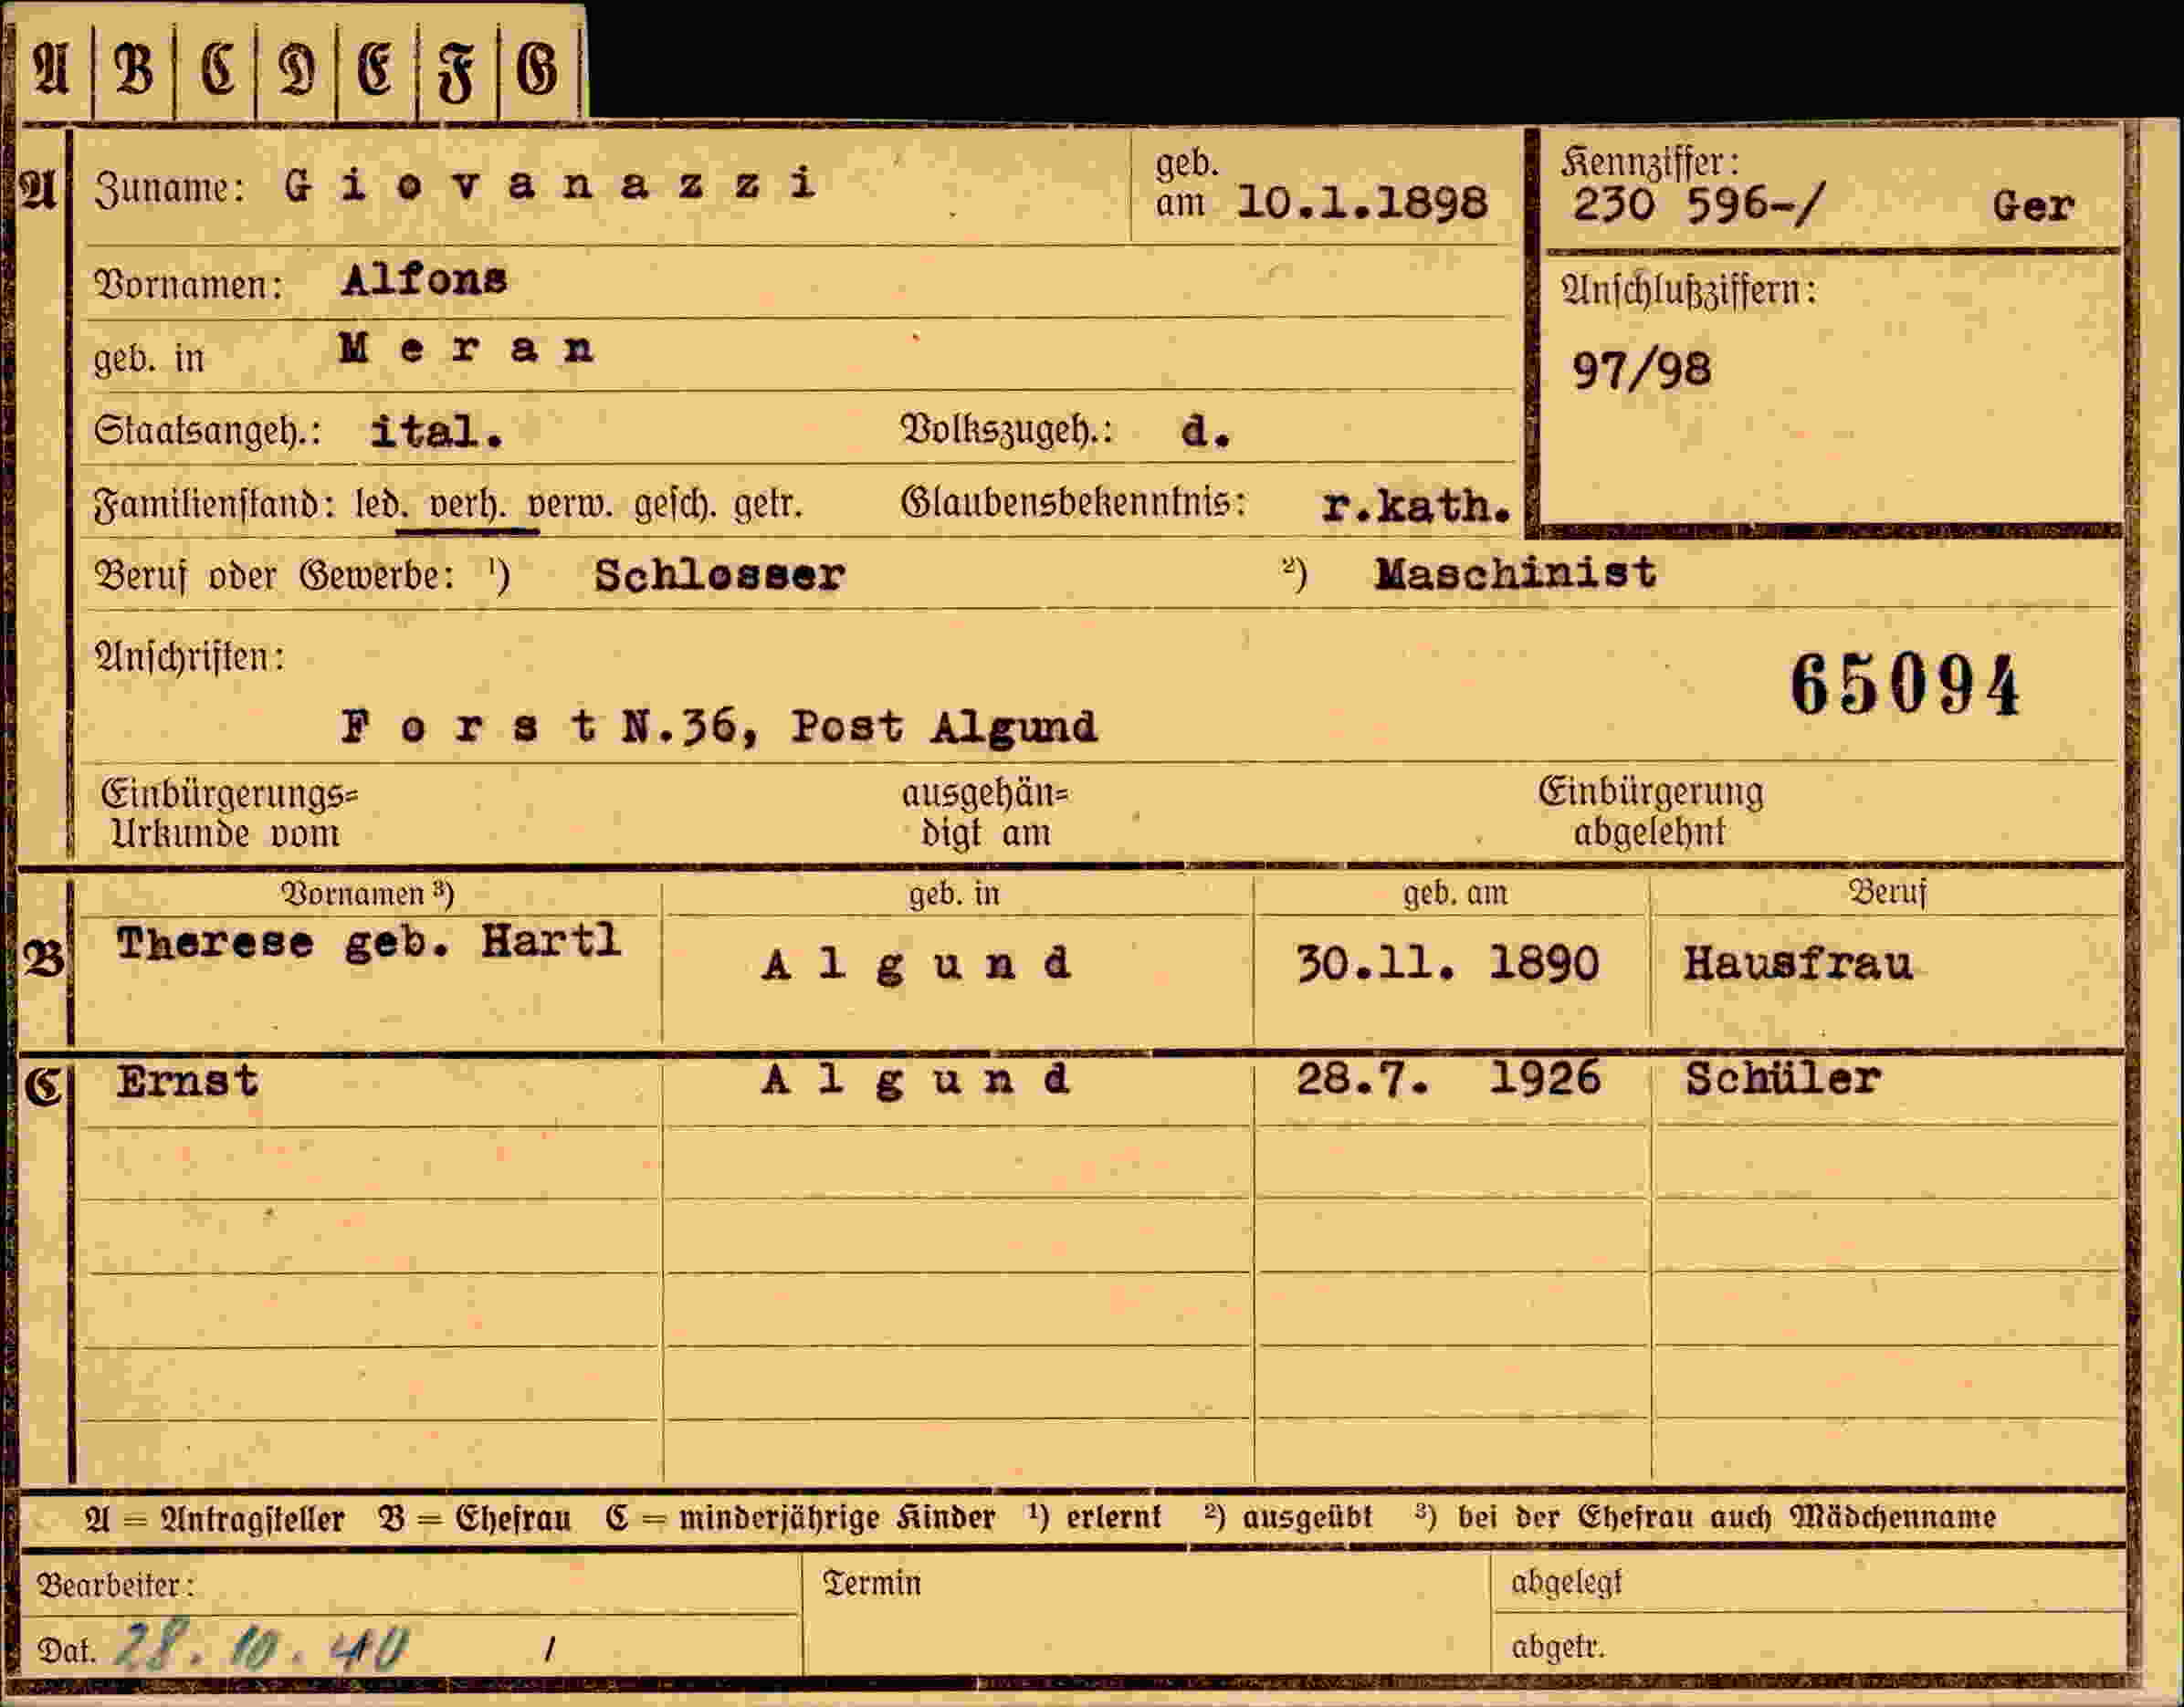 A B C D E F G
A Zuname: Giovanazzi geb. am 10.1.1898 Kennziffer: 230 596-/ Ger
Vornamen: Alfons Anschlußziffern:
geb. in Meran 97/98
Staatsangeh.: ital. Volkszugeh.: d.
Familienstand: led. verh. verw. gesch. getr. Glaubensbekenntnis: r.kath.
Beruf oder Gewerbe: ¹) Schlosser ²) Maschinist
Anschriften: 65094
Forst N.36, Post Algund
Einbürgerungs= ausgehän= Einbürgerung
Urkunde vom digt am abgelehnt
Vornamen ³) geb. in geb. am Beruf
B Therese geb. Hartl Algund 30.11. 1890 Hausfrau
C Ernst Algund 28.7. 1926 Schüler
A = Antragsteller B = Ehefrau C = minderjährige Kinder ¹) erlernt ²) ausgeübt ³) bei der Ehefrau auch Mädchenname
Bearbeiter: Termin abgelegt
Dat. 28.10.40 / abgetr.